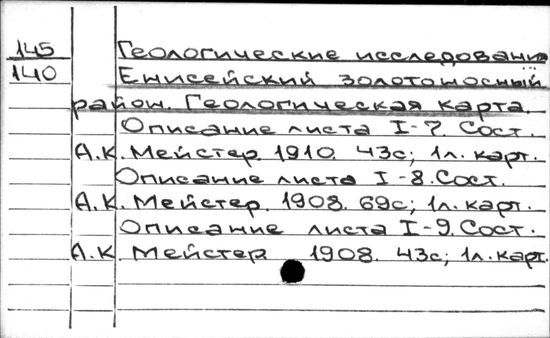 145 Геологические исследования
140 Енисейский золотоносный
район. Геологическая карта.
Описание листа I-7. Сост.
А.К. Мейстер. 1910. 43с; 1л. карт.
Описание листа I-8. Сост.
А.К. Мейстер. 1908. 69с; 1л. карт.
Описание листа I-9. Сост.
А.К. Мейстер 1908. 43с; 1л. карт.